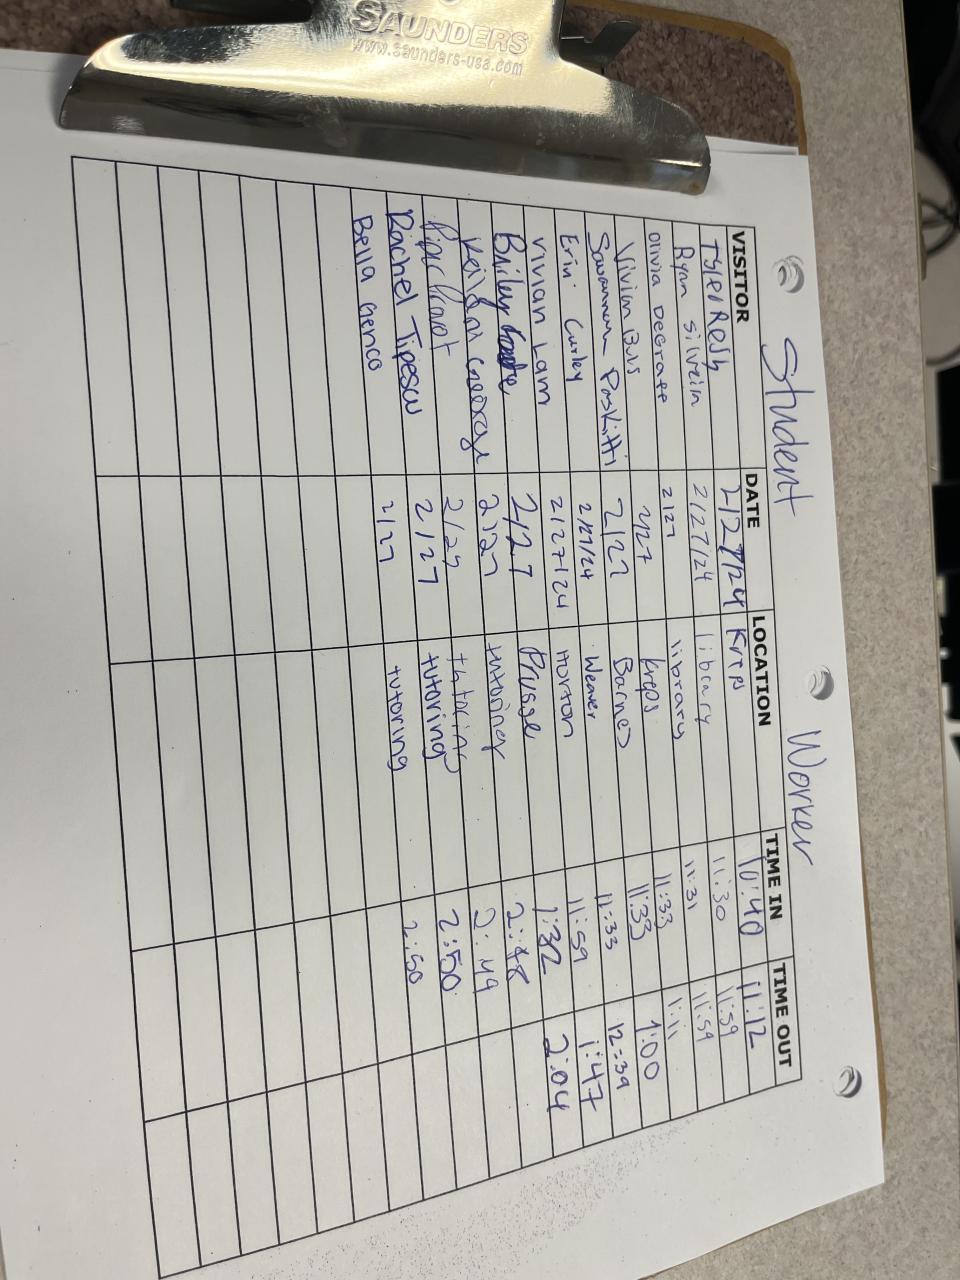 SAUNDERS
www.saunders-usa.com
Student Worker
VISITOR DATE LOCATION TIME IN TIME OUT
Tyler Resh 2/27/24 Kreps 10:40 11:12
Ryan 2/27/24 library 11:30 11:59
Olivia DeGrate 2/27 library 11:31 11:59
Vivian 2/27 Kreps 11:33 1:11
Savannah Paskitti 2/27 Barnes 11:33 1:00
Erin Curley 2/27/24 Weaver 11:33 12:39
Vivian Lam 2/27/24 Horton 11:59 1:47
Briley 2/27 Prusse 1:32 2:04
George 2/27 tutoring 2:48
2/27 tutoring 2:49
Rachel Tipescu 2/27 tutoring 2:50
Bella Genco 2/27 tutoring 2:50